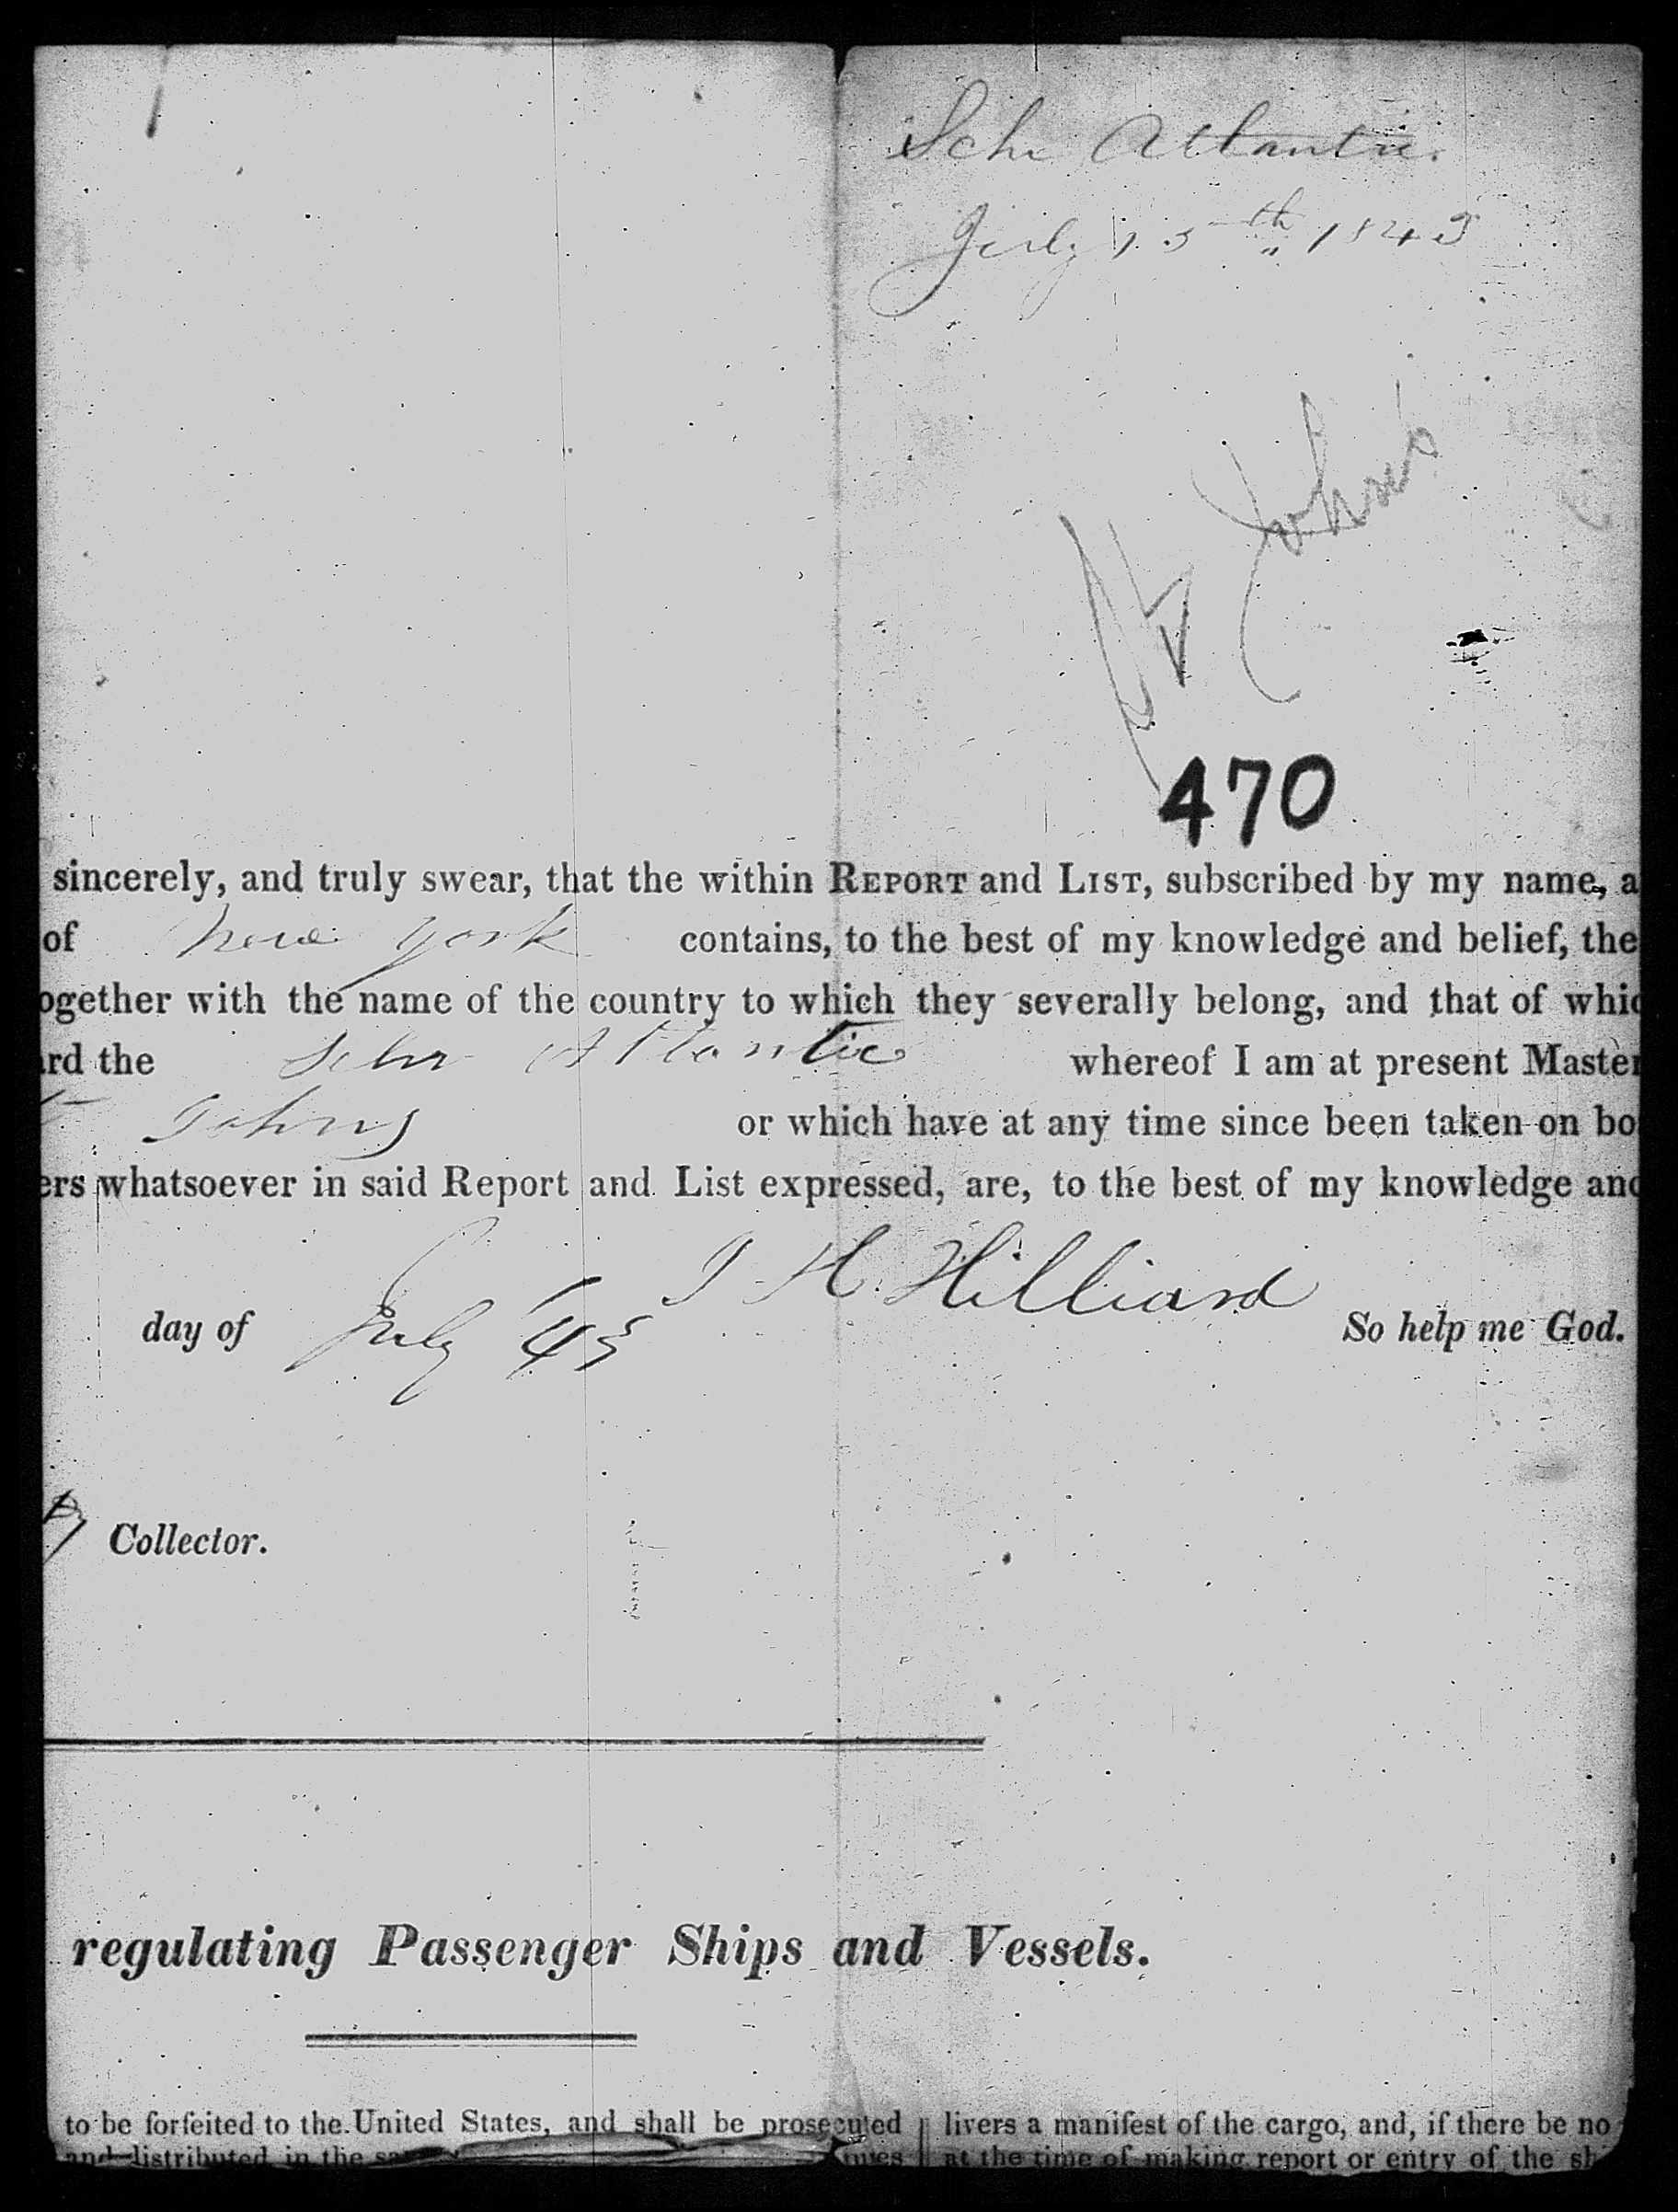 Schr Atlantic.
July 15th 1845
St Johns
470
sincerely, and truly swear, that the within REPORT and LIST, subscribed by my name, a
of New York contains, to the best of my knowledge and belief, the
ogether with the name of the country to which they severally belong, and that of whic
ard the Schr Atlantic whereof I am at present Master
Johns or which have at any time since been taken on bo
ers whatsoever in said Report and List expressed, are, to the best of my knowledge and
H. Hilliard
day of July 45 So help me God.
Collector.
regulating Passenger Ships and Vessels.
to be forfeited to the United States, and shall be prosecuted
and distributed in the
livers a manifest of the cargo, and, if there be no
at the time of making report or entry of the sh